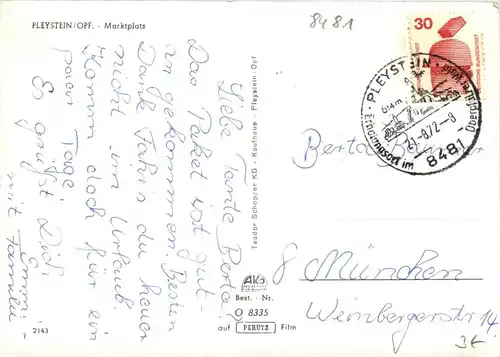 PLEYSTEIN/OPF. - Marktplatz
8481
30
DEUTSCHE BUNDESPOST
PLEYSTEIN
614m
21.-8.72-8
Erholungsort im
8481
Liebe Tante Berta!
Das Paket ist gut
angekommen. Besten
Dank. Fahrn du heuer
nicht im Urlaub.
Komm doch für ein
paar Tage!
Es grüßt Dich
Emmi
mit Familie
Teodor Schopper KG - Kaufhaus - Pleystein - Opf
Berta
8 München
Weinbergerstr 14
AKO
Best. - Nr.
O 8335
auf PERUTZ Film
2143